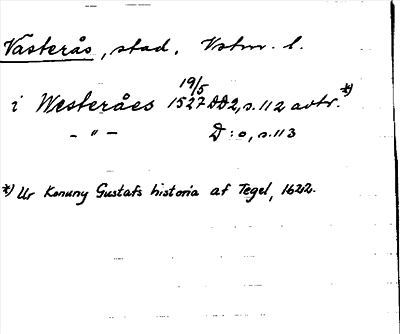 Västerås, stad. Vstm. l.
i Westeråes 19/5 1527 DD2, s. 112 avtr. *)
— " — D:o, s. 113
*) Ur Konung Gustafs historia af Tegel, 1622.